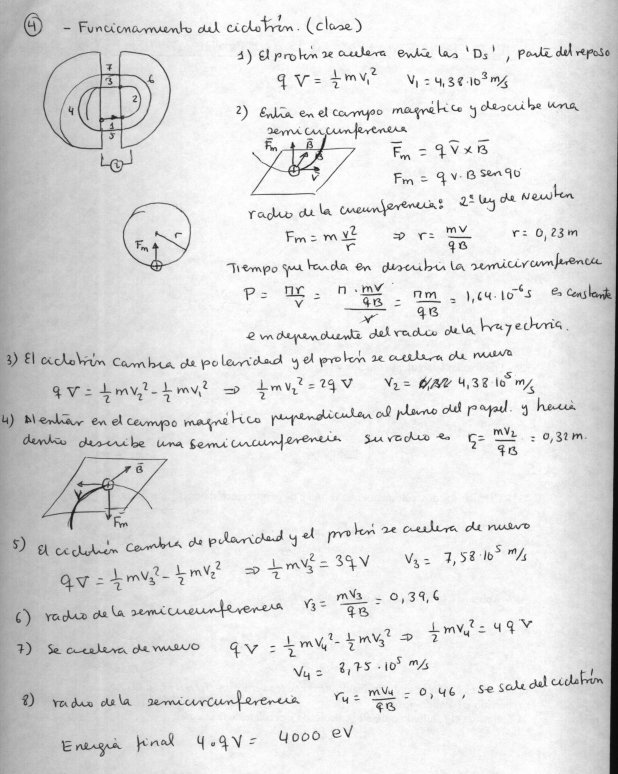 ④ - Funcionamiento del ciclotrón. (clase)
7
3
6
4
2
1
5
1) El protón se acelera entre las 'Ds', parte del reposo
qV = 1/2 mv₁² V₁ = 4,38·10³ m/s
2) Entra en el campo magnético y describe una
semicircunferencia
F̄m B̄ v̄
F̄m = q v̄ × B̄
Fm = q v·B sen 90
radio de la circunferencia: 2ª ley de Newton
r
Fm
Fm = m v²/r ⇒ r = mv/qB r = 0,23 m
Tiempo que tarda en describir la semicircunferencia
P = πr/v = (π·mv/qB)/v = πm/qB = 1,64·10⁻⁶ s es constante
e independiente del radio de la trayectoria.
3) El ciclotrón cambia de polaridad y el protón se acelera de nuevo
qV = 1/2 mv₂² - 1/2 mv₁² ⇒ 1/2 mv₂² = 2qV V₂ = 4,38·10⁵ m/s
4) Al entrar en el campo magnético perpendicular al plano del papel y hacia
dentro describe una semicircunferencia su radio es r₂ = mv₂/qB = 0,32 m.
B̄
v
F̄m
5) El ciclotrón cambia de polaridad y el protón se acelera de nuevo
qV = 1/2 mv₃² - 1/2 mv₂² ⇒ 1/2 mv₃² = 3qV V₃ = 7,58·10⁵ m/s
6) radio de la semicircunferencia r₃ = mv₃/qB = 0,39,6
7) Se acelera de nuevo qV = 1/2 mv₄² - 1/2 mv₃² ⇒ 1/2 mv₄² = 4qV
V₄ = 8,75·10⁵ m/s
8) radio de la semicircunferencia r₄ = mv₄/qB = 0,46, se sale del ciclotrón
Energía final 4·qV = 4000 eV